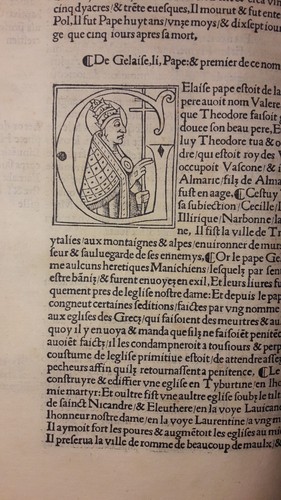 cinq dyacres / & trête euesques, Il mourut & fut ente
Pol, Il fut Pape huyt ans / vnge moys / & dix sept iour
ge que cinq iours apres sa mort,
¶ De Gelaise, li, Pape: & premier de ce nom
G Elaise pape estoit de la
pere auoit nom Valere
que Theodore faisoit g
douce son beau pere, E
luy Theodore tua & o
dre / qui estoit roy des V
occupoit Vascone /
Almarie / filz de Alma
fust en aage, ¶ Cestuy
sa subiection / Cecille / l
Illirique / Narbonne / la
ne, Il fist la ville de Tr
ytalies / aux montaignes & alpes / enuironner de mur
seur & sauluegarde de ses ennemys, ¶ Or le pape Ge
me aulcuns heretiques Manichiens / lesquelz par sen
estre bāniz / & furent enuoyez en exil, Et leurs liures fu
quement pres de leglise nostre dame: Et depuis le pap
congneut certaines seditions / faictes par vng nomm
aux eglises des Grecz / qui faisoient des meurtres & au
quoy il y enuoya & manda que silz ne faisoiēt penitēc
auoiēt faictz / il les condampneroit a tousiours & perp
coustume de leglise primitiue estoit / de attendre assez
pecheurs affin quilz retournassent a penitence, ¶ Le
construyre & ediffier vne eglise en Tyburtine / en lho
mie martyr: Et oultre fist vne aultre eglise soubz le tilt
de sainct Nicandre / & Eleuthere / en la voye Lauicane
lhonneur nostre dame / en la voye Laurentine / a vng m
Il aymoit fort les poures & augmētoit les eglises au mi
Il preserua la ville de romme de beaucoup de maulx / &